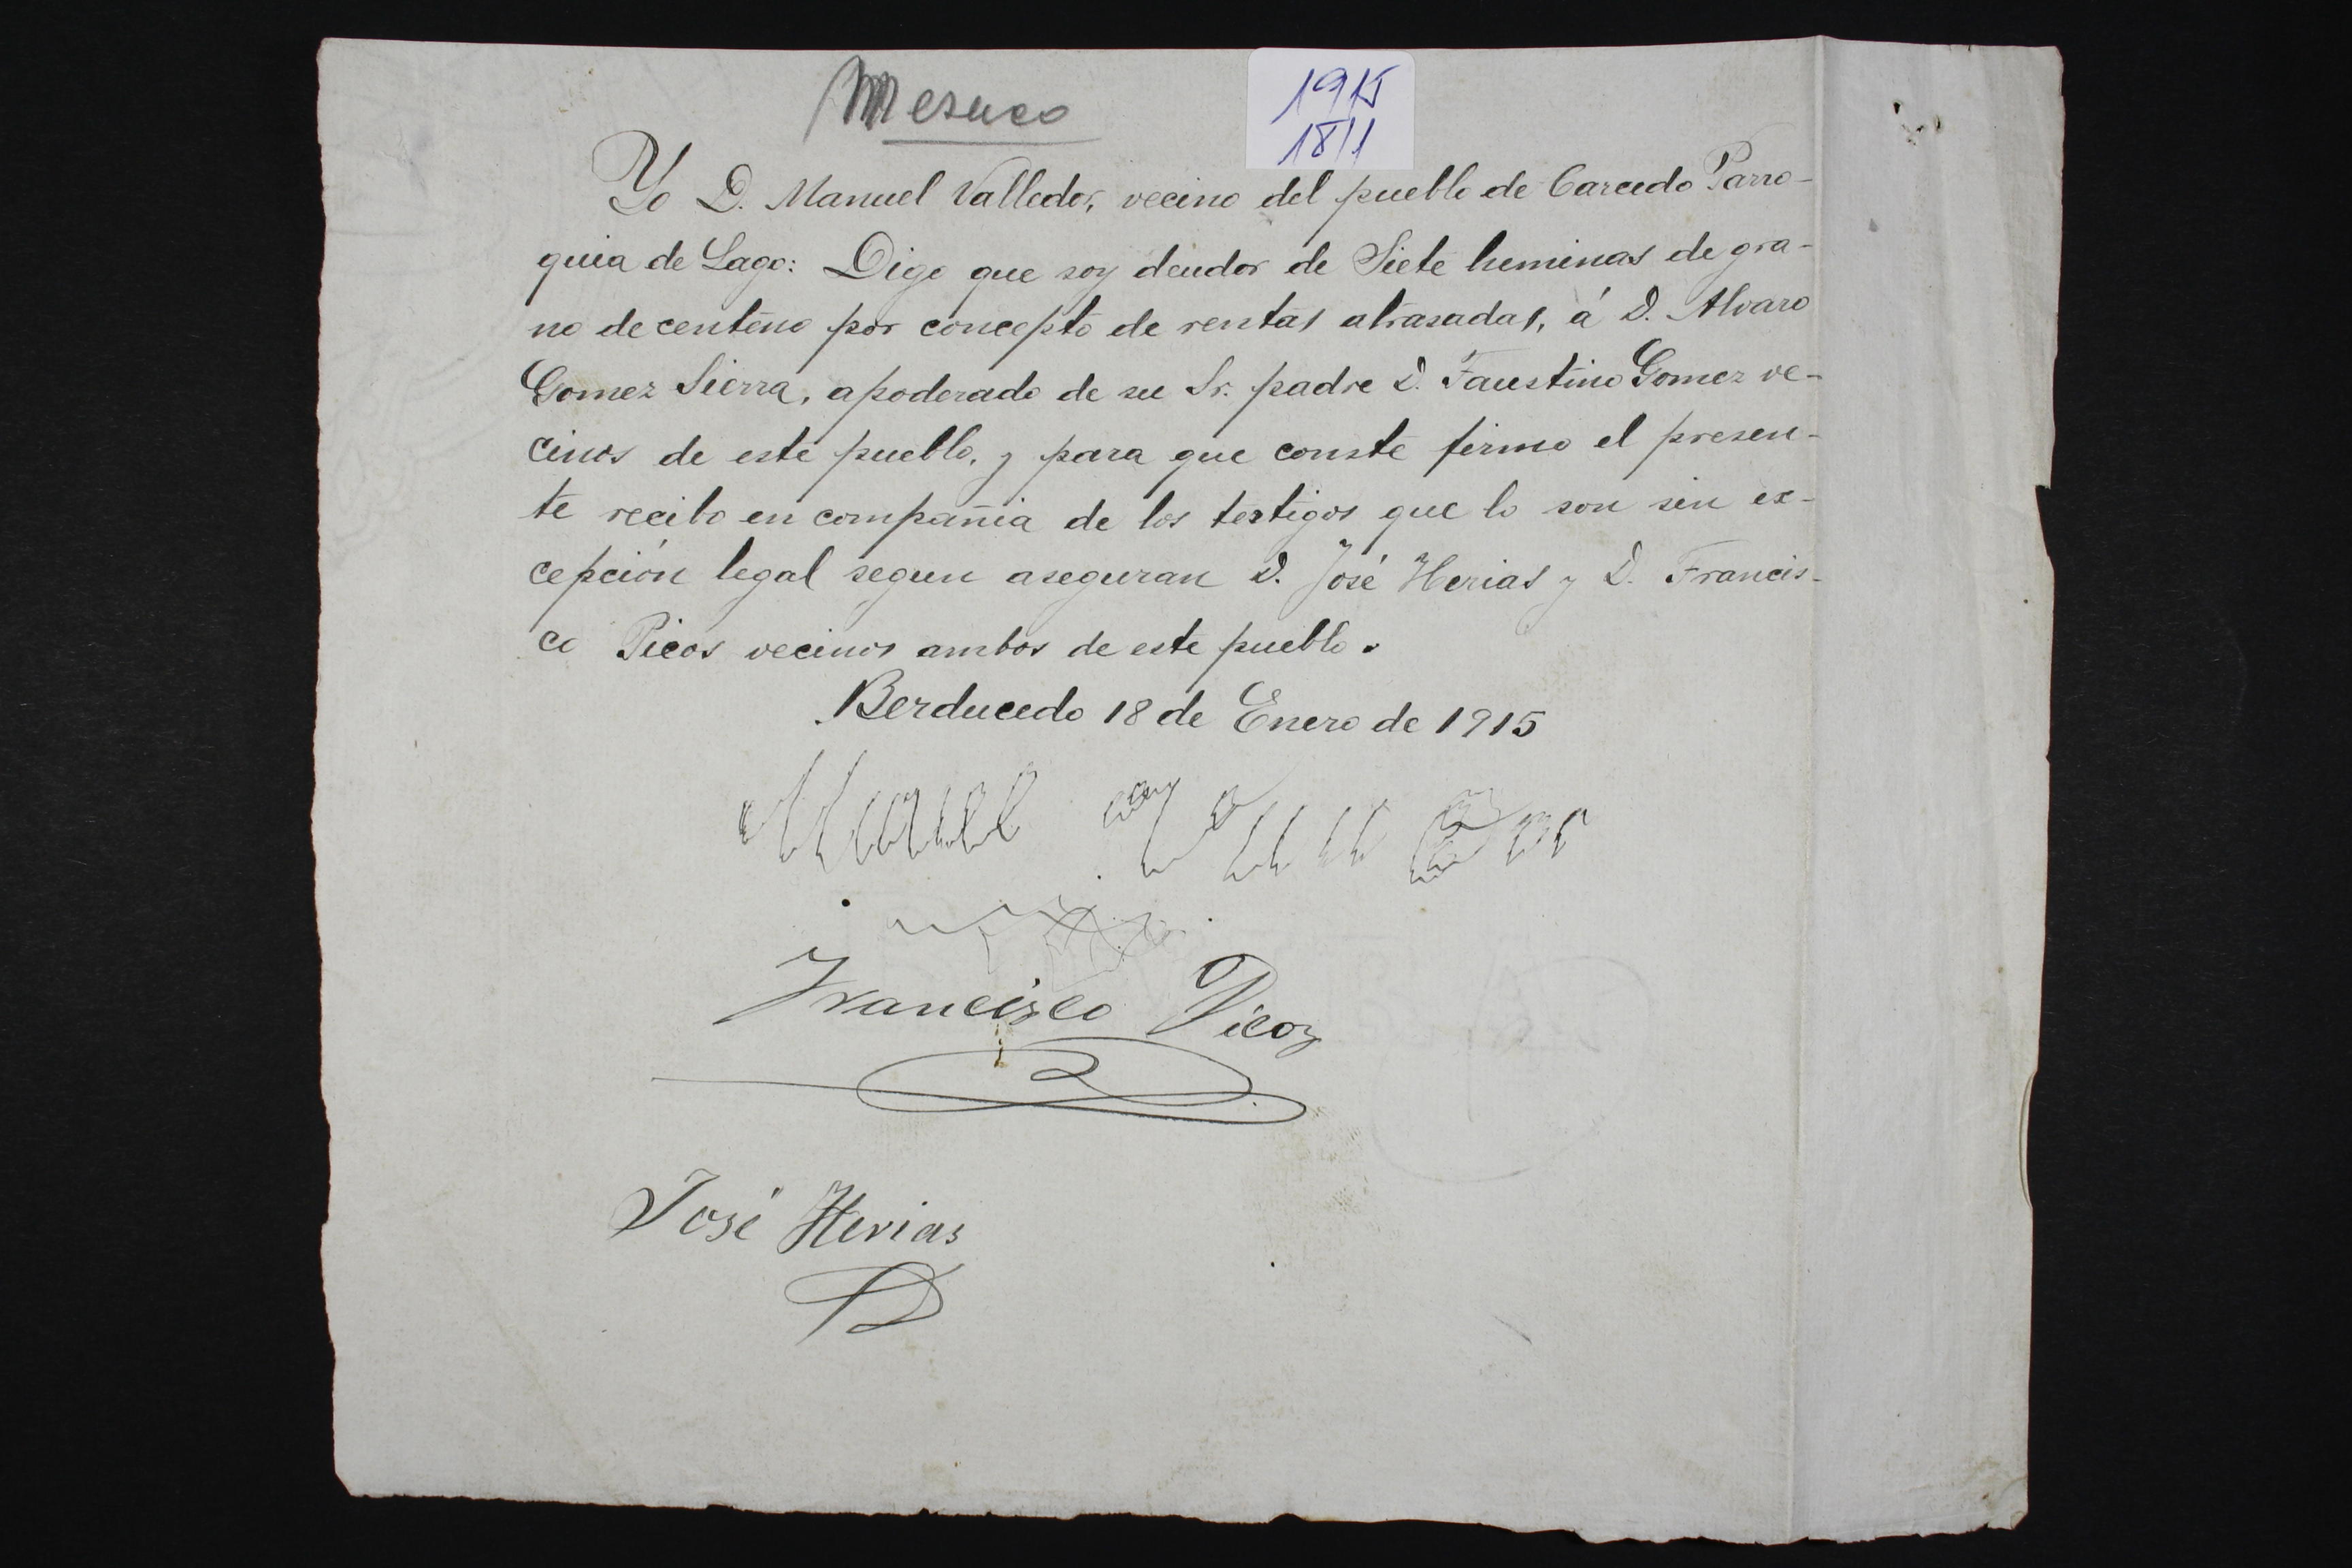 Mesuco
1915
18/1
Yo D. Manuel Valledor, vecino del pueblo de Carcedo Parro-
quia de Lago: Digo que soy deudor de Siete heminas de gra-
no de centeno por concepto de rentas atrasadas, á D. Alvaro
Gomez Sierra, apoderado de su Sr. padre D. Faustino Gomez ve-
cinos de este pueblo, y para que conste firmo el presen-
te recibo en compañia de los testigos que lo son sin ex-
cepción legal segun aseguran D. José Herias y D. Francis-
co Picos vecinos ambos de este pueblo.
Berducedo 18 de Enero de 1915
Francisco Picos
José Herias